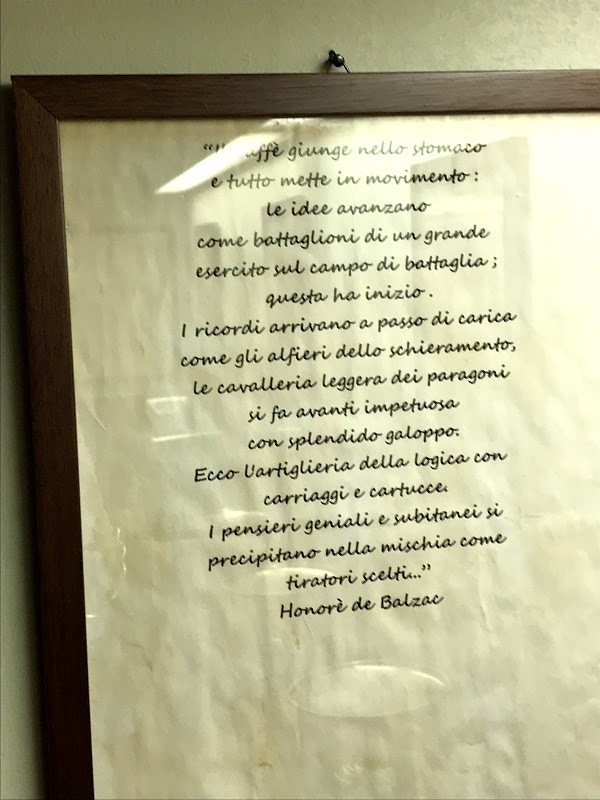 giunge nello stomaco
e tutto mette in movimento :
le idee avanzano
come battaglioni di un grande
esercito sul campo di battaglia ;
questa ha inizio .
I ricordi arrivano a passo di carica
come gli alfieri dello schieramento,
le cavalleria leggera dei paragoni
si fa avanti impetuosa
con splendido galoppo.
Ecco l'artiglieria della logica con
carriaggi e cartucce.
I pensieri geniali e subitanei si
precipitano nella mischia come
tiratori scelti..."
Honorè de Balzac